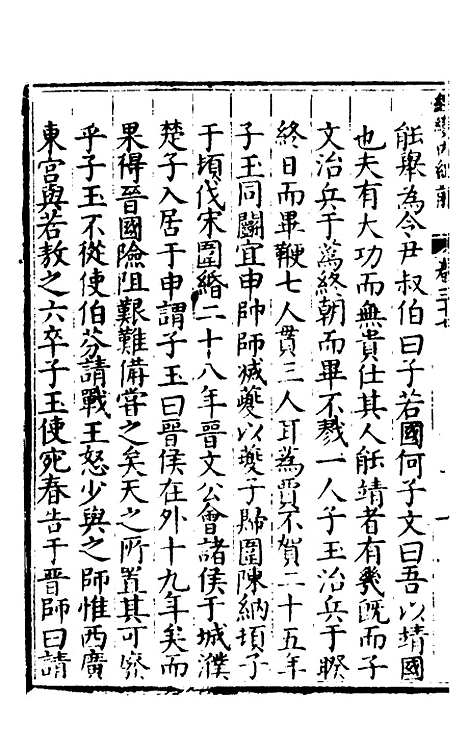 能舉為令尹叔伯曰子若國何子文曰吾以靖國
也夫有大功而無貴仕其人能靖者有幾既而子
文治兵于蒍終朝而畢不戮一人子玉治兵于睽
終日而畢鞭七人貫三人耳為賈不賀二十五年
子玉同鬬宜申帥師滅夔以夔子歸圍陳納頓子
于頓伐宋圍緡二十八年晉文公會諸侯于城濮
楚子入居于申謂子玉曰晉侯在外十九年矣而
果得晉國險阻艱難備嘗之矣天之所置其可廢
乎子玉不從使伯芬請戰王怒少與之師惟西廣
東宮與若敖之六卒子玉使宛春告于晉師曰請
卷三十七